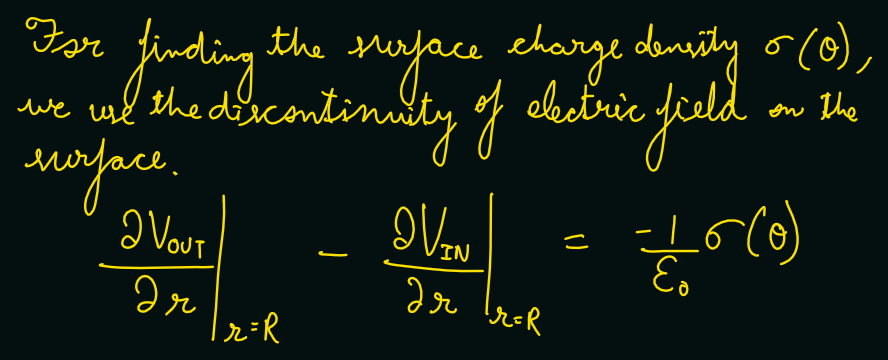 For finding the surface charge density σ(θ),
we use the discontinuity of electric field on the
surface.
∂V_OUT/∂r|_{r=R} - ∂V_IN/∂r|_{r=R} = -1/ε₀ σ(θ)